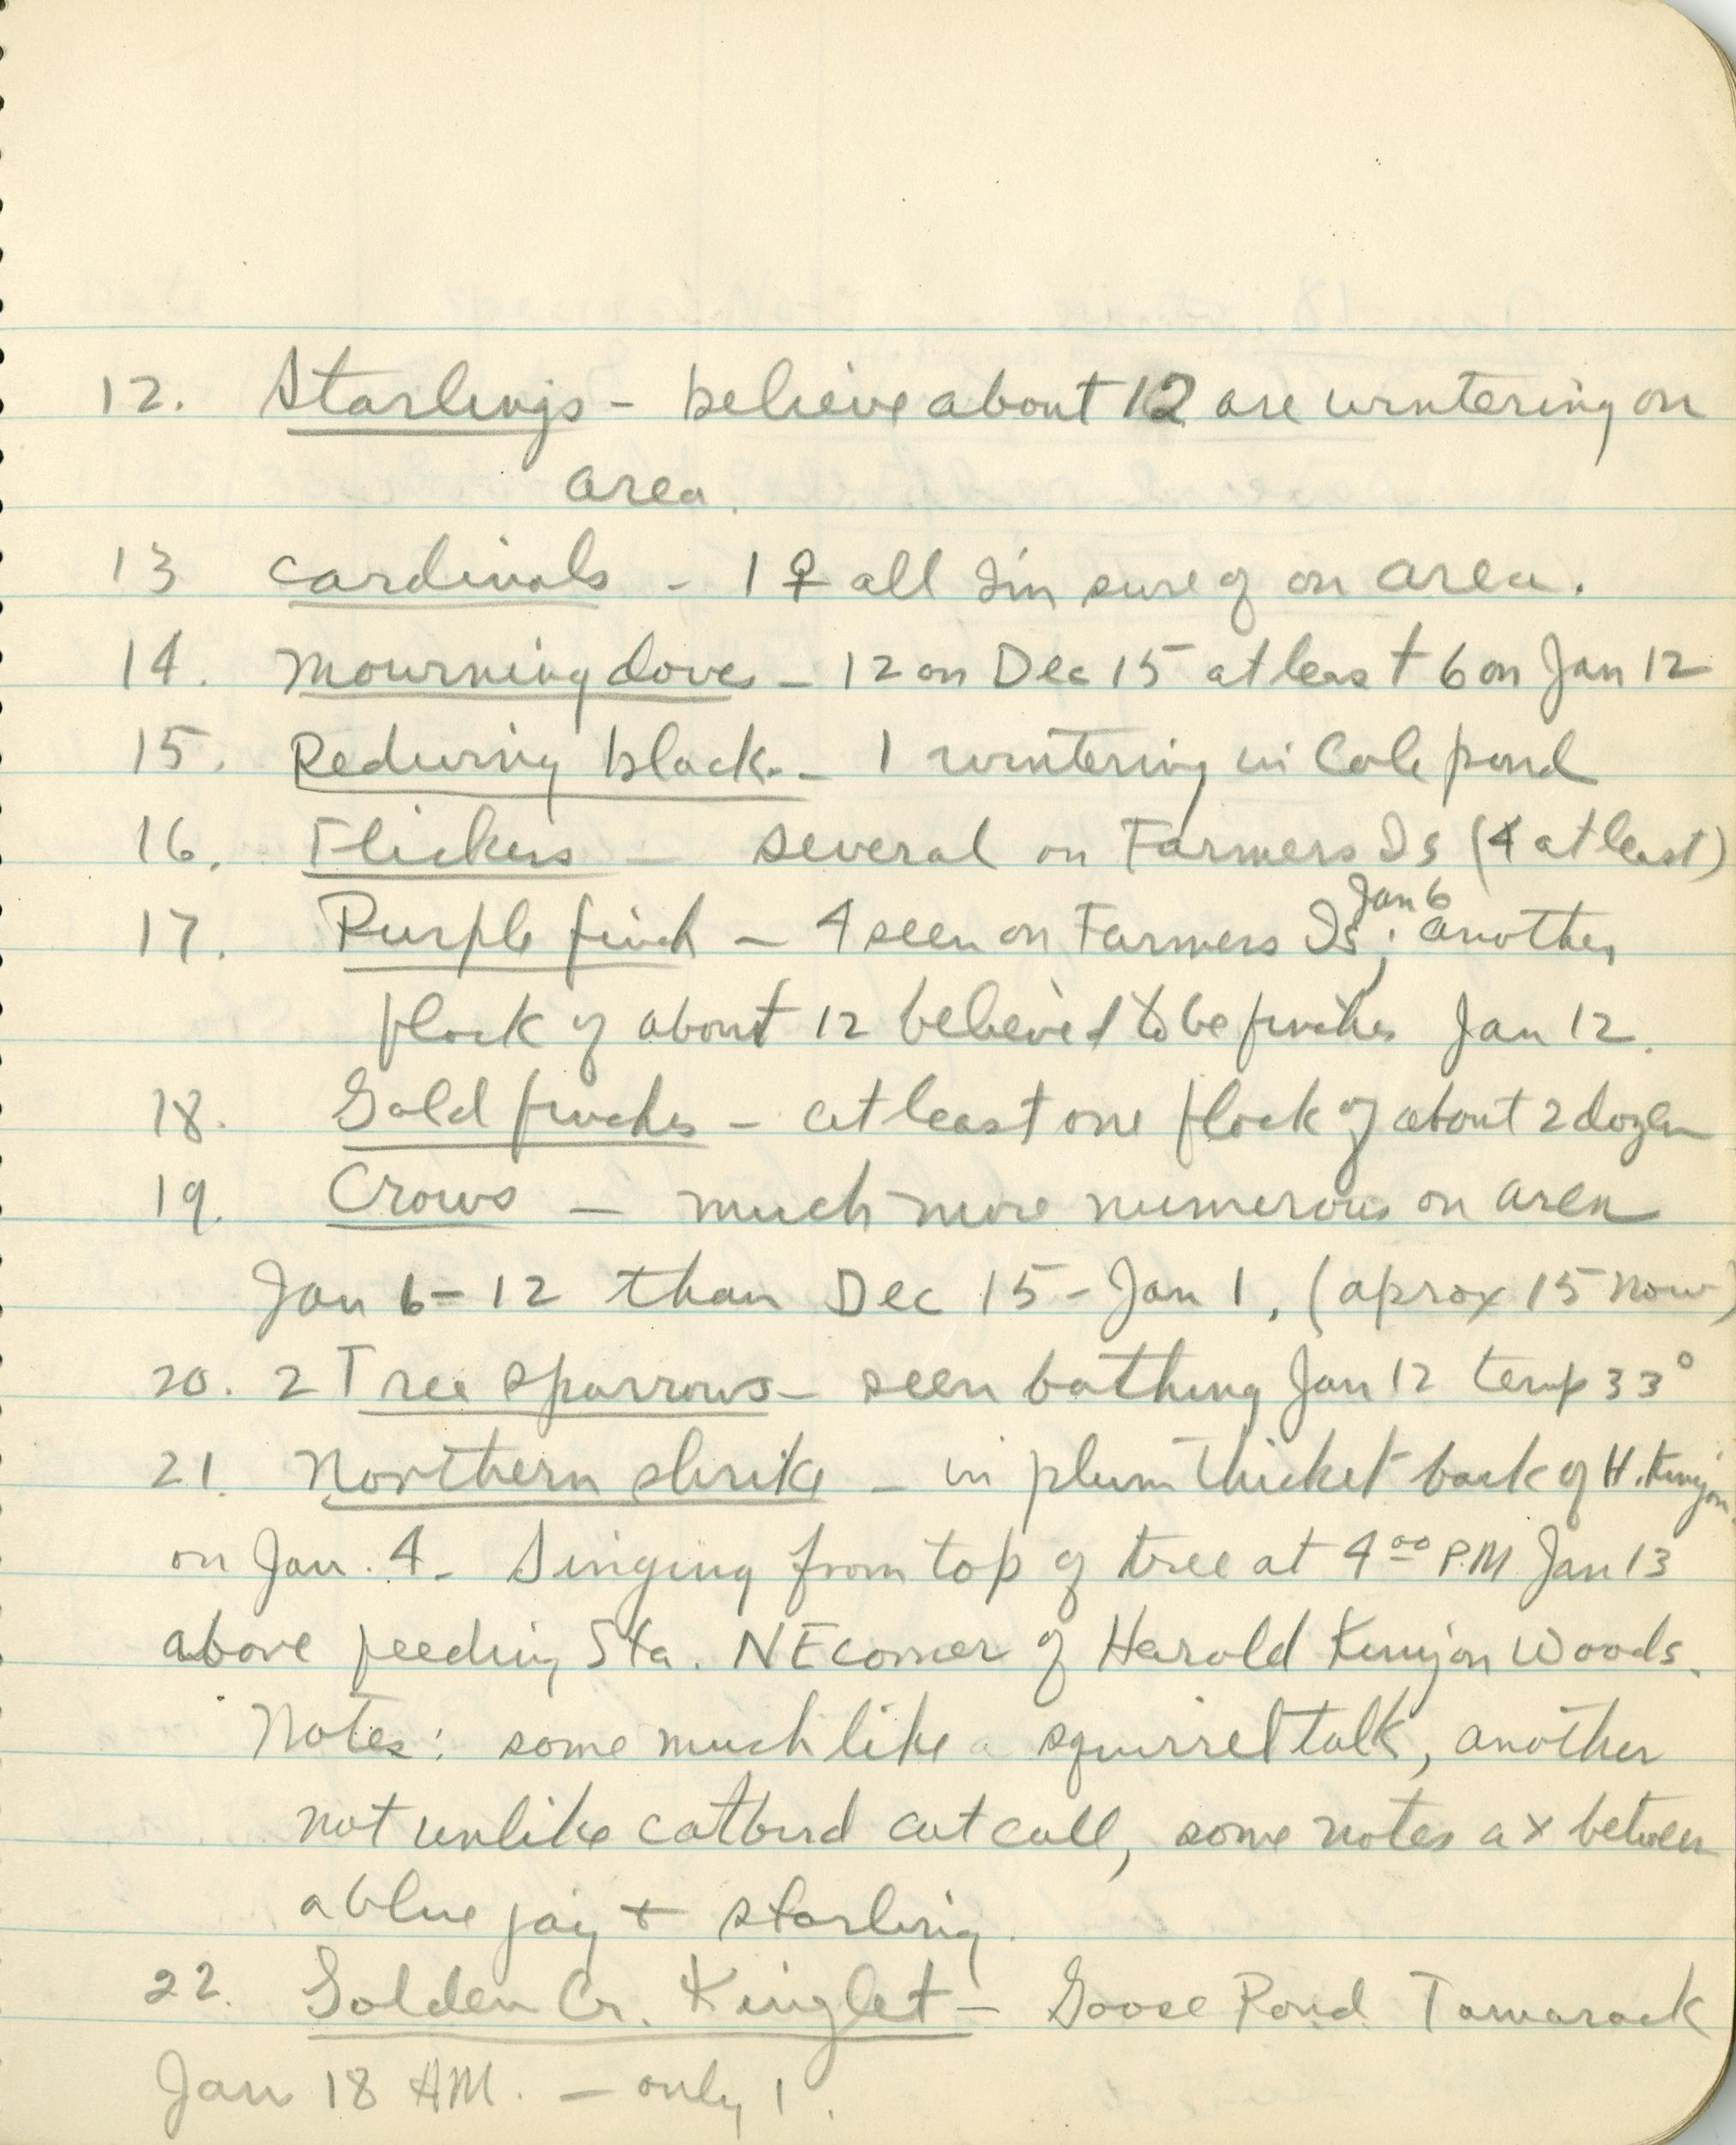 12. Starlings - believe about 12 are wintering on
area.
13 Cardinals - 1 ♀ all I'm sure of on area.
14. Mourning doves - 12 on Dec 15 at least 6 on Jan 12
15. Redwing black. - 1 wintering in Cole pond
16. Flickers - several on Farmers Is (4 at least)
17. Purple finch - 4 seen on Farmers Is Jan 6; another
flock of about 12 believed to be finches Jan 12.
18. Gold finches - at least one flock of about 2 dozen
19. Crows - much more numerous on area
Jan 6-12 than Dec 15 - Jan 1, (aprox 15 now)
20. 2 Tree sparrows - seen bathing Jan 12 temp 33°
21. Northern shrike - in plum thicket back of H. Kinyon
on Jan. 4. Singing from top of tree at 4 00 P.M Jan 13
above feeding Sta. NE corner of Harold Kinyon Woods.
Notes: some much like a squirrel talk, another
not unlike catbird cat call, some notes a x between
a blue jay + starling.
22. Golden Cr. Kinglet - Goose Pond Tamarack
Jan 18 AM. - only 1.